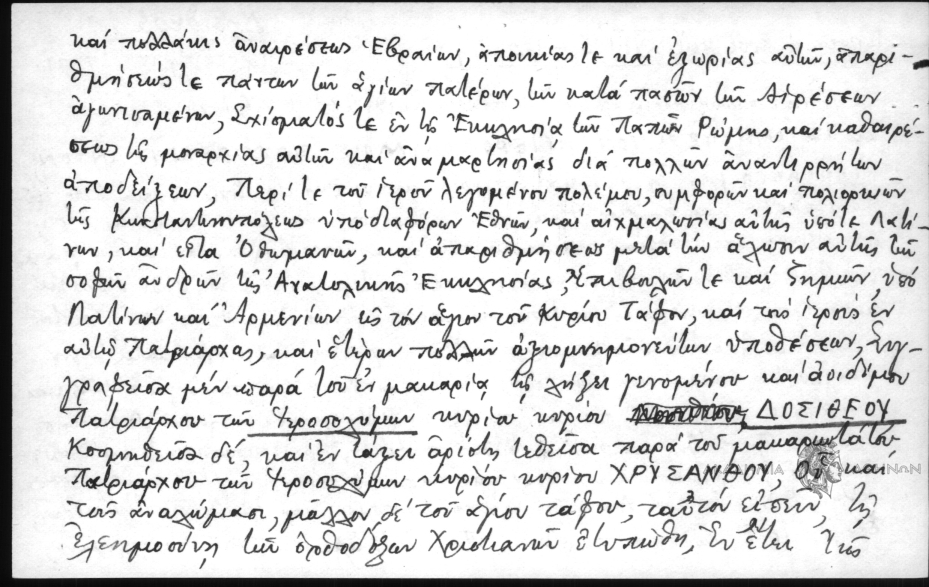 καί πολλάκις ἀναιρέσεως Ἑβραίων, ἀποικίας τε καί ἐξορίας αὐτῶν, ἀπαρι-
θμήσεώς τε πάντων τῶν ἁγίων πατέρων, τῶν κατά πασῶν τῶν Αἱρέσεων
ἀγωνισαμένων, Σχίσματός τε ἐν τῇ Ἐκκλησίᾳ τῶν Παπῶν Ρώμης, καί καθαιρέ-
σεως τῆς μοναρχίας αὐτῶν καί ἀναμαρτησίας διά πολλῶν ἀναντιρρήτων
ἀποδείξεων, Περί τε τοῦ ἱεροῦ λεγομένου πολέμου, συμφορῶν καί πολιορκιῶν
τῆς Κωνσταντινουπόλεως ὑπό διαφόρων Ἐθνῶν, καί αἰχμαλωσίας αὐτῆς ὑπό τε Λατί-
νων, καί εἶτα Ὀθωμανῶν, καί ἀπαριθμήσεως μετά τήν ἅλωσιν αὐτῆς τῶν
σοφῶν ἀνδρῶν τῆς Ἀνατολικῆς Ἐκκλησίας, Ἐπιβουλῶν τε καί ζημιῶν, ὑπό
Λατίνων καί Ἀρμενίων εἰς τόν ἅγιον τοῦ Κυρίου Τάφον, καί τούς ἱερούς ἐν
αὐτῷ Πατριάρχας, καί ἑτέρων πολλῶν ἀξιομνημονεύτων ὑποθέσεων, Συγ-
γραφεῖσα μέν παρά τοῦ ἐν μακαρίᾳ τῇ λήξει γενομένου καί ἀοιδίμου
Πατριάρχου τῶν Ἱεροσολύμων κυρίου κυρίου ΔΟΣΙΘΕΟΥ
Κοσμηθεῖσα δέ, καί ἐν τάξει ἀρίστῃ τεθεῖσα παρά τοῦ μακαριωτάτου
Πατριάρχου τῶν Ἱεροσολύμων κυρίου κυρίου ΧΡΥΣΑΝΘΟΥ, Οὗ καί
τοῖς ἀναλώμασι, μᾶλλον δέ τοῦ ἁγίου τάφου, ταὐτόν εἰπεῖν, τῇ
Ἐλεημοσύνῃ τῶν ὀρθοδόξων Χριστιανῶν ἐτυπώθη, Ἐν ἔτει τῆς